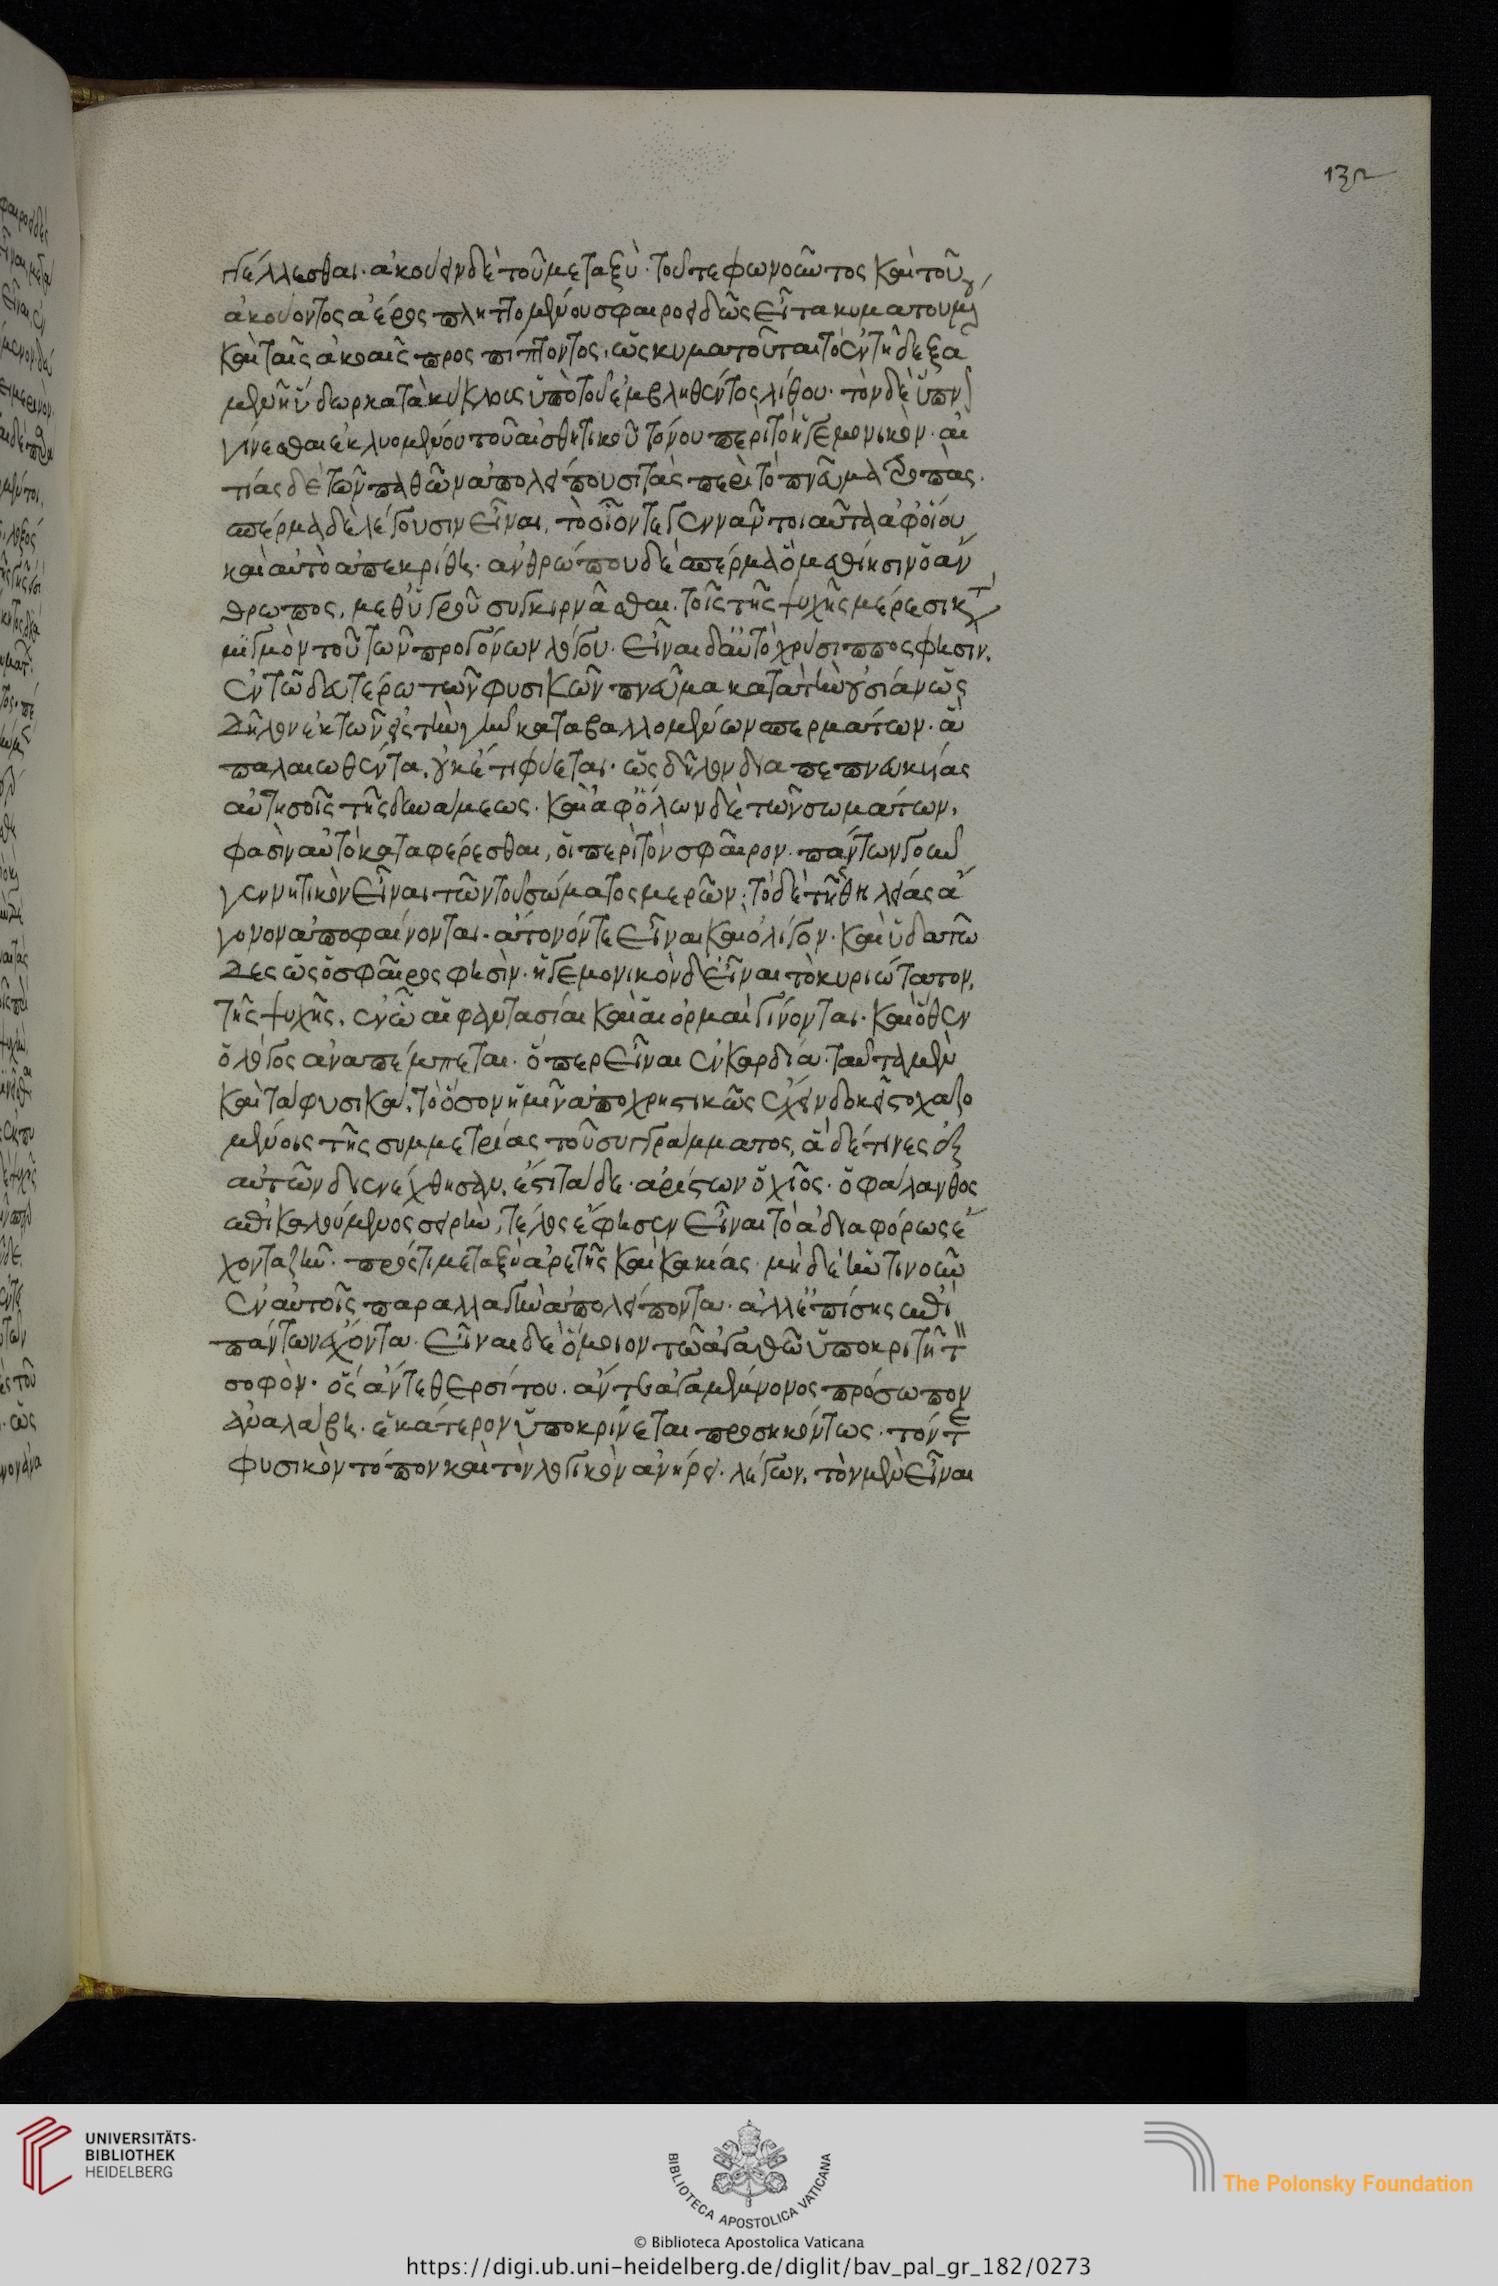 132
γέλλεσθαι. ἀκούειν δὲ τοῦ μεταξὺ τοῦ τε φωνοῦντος καὶ τοῦ
ἀκούοντος ἀέρος πληττομένου σφαιροειδῶς εἶτα κυματουμ
καὶ ταῖς ἀκοαῖς προσπίπτοντος, ὡς κυματοῦται τὸ ἐν τῇ δεξα
μενῇ ὕδωρ κατὰ κύκλους ὑπὸ τοῦ ἐμβληθέντος λίθου. τὸν δὲ ὕπν
γίνεσθαι ἐκλυομένου τοῦ αἰσθητικοῦ τόνου περὶ τὸ ἡγεμονικόν. αἰ
τίας δὲ τῶν παθῶν ἀπολείπουσι τὰς περὶ τὸ πνεῦμα τροπάς.
σπέρμα δὲ λέγουσιν εἶναι, τὸ οἷόν τε γεννᾶν τοιαῦτα ἀφ' οἵου
καὶ αὐτὸ ἀπεκρίθη. ἀνθρώπου δὲ σπέρμα ὃ μεθίησιν ὁ ἄν
θρωπος, μεθ' ὑγροῦ συγκιρνᾶσθαι τοῖς τῆς ψυχῆς μέρεσι κατ
μιγμὸν τοῦ τῶν προγόνων λόγου. εἶναι δ' αὐτὸ χρύσιππός φησιν,
ἐν τῷ δευτέρῳ τῶν φυσικῶν πνεῦμα κατὰ τὴν οὐσίαν ὡς
δῆλον ἐκ τῶν εἰς τὴν γῆν καταβαλλομένων σπερμάτων. ἃ
παλαιωθέντα, οὐκέτι φύεται. ὡς δῆλον διαπεπνευκυίας
αὐτῆς οἷς τῆς δυνάμεως. καὶ ἀφ' ὅλων δὲ τῶν σωμάτων,
φασὶν αὐτὸ καταφέρεσθαι, οἱ περὶ τὸν σφαῖρον. πάντων γοῦν
γεννητικὸν εἶναι τῶν τοῦ σώματος μερῶν, τὸ δὲ τῆς θηλείας ἄ
γονον ἀποφαίνονται. ἄτονόν τε εἶναι καὶ ὀλίγον. καὶ ὑδατῶ
δες ὡς ὁ σφαῖρος φησίν. ἡγεμονικὸν δ' εἶναι τὸ κυριώτατον,
τῆς ψυχῆς, ἐν ᾧ αἱ φαντασίαι καὶ αἱ ὁρμαὶ γίνονται. καὶ ὅθεν
ὁ λόγος ἀναπέμπεται. ὅπερ εἶναι ἐν καρδίᾳ. ταῦτα μὲν
καὶ τὰ φυσικά, τὸ ὅσον ἡμῖν ἀποχρηστικῶς ἔχειν δοκεῖ στοχαζο
μένοις τῆς συμμετρίας τοῦ συγγράμματος, ἃ δέ τινες ἐξ
αὐτῶν διενέχθησαν, ἔστι τάδε. ἀρίστων ὁ χῖος. ὁ φάλανθος
ἐπικαλούμενος σειρὴν, τέλος ἔφησεν εἶναι τὸ ἀδιαφόρως ἔ
χοντα ζῆν. πρός τι μεταξὺ ἀρετῆς καὶ κακίας. μὴ δὲ ἣν τινοῦν
ἐν αὐτοῖς παραλλαγὴν ἀπολείποντα. ἀλλ' ἐπίσης ἐπὶ
πάντων ἔχοντα. εἶναι δὲ ὅμοιον τῷ ἀγαθῷ ὑποκριτῇ τ
σοφόν. ὃς ἄν τε θερσίτου. ἄν τε ἀγαμέμνονος πρόσωπον
ἀναλάβῃ. ἑκάτερον ὑποκρίνεται προσηκόντως. τόν τε
φυσικὸν τόπον καὶ τὸν λογικὸν ἀνῄρει. λέγων, τὸν μὲν εἶναι
UNIVERSITÄTS-
BIBLIOTHEK
HEIDELBERG
BIBLIOTECA APOSTOLICA VATICANA
The Polonsky Foundation
© Biblioteca Apostolica Vaticana
https://digi.ub.uni-heidelberg.de/diglit/bav_pal_gr_182/0273